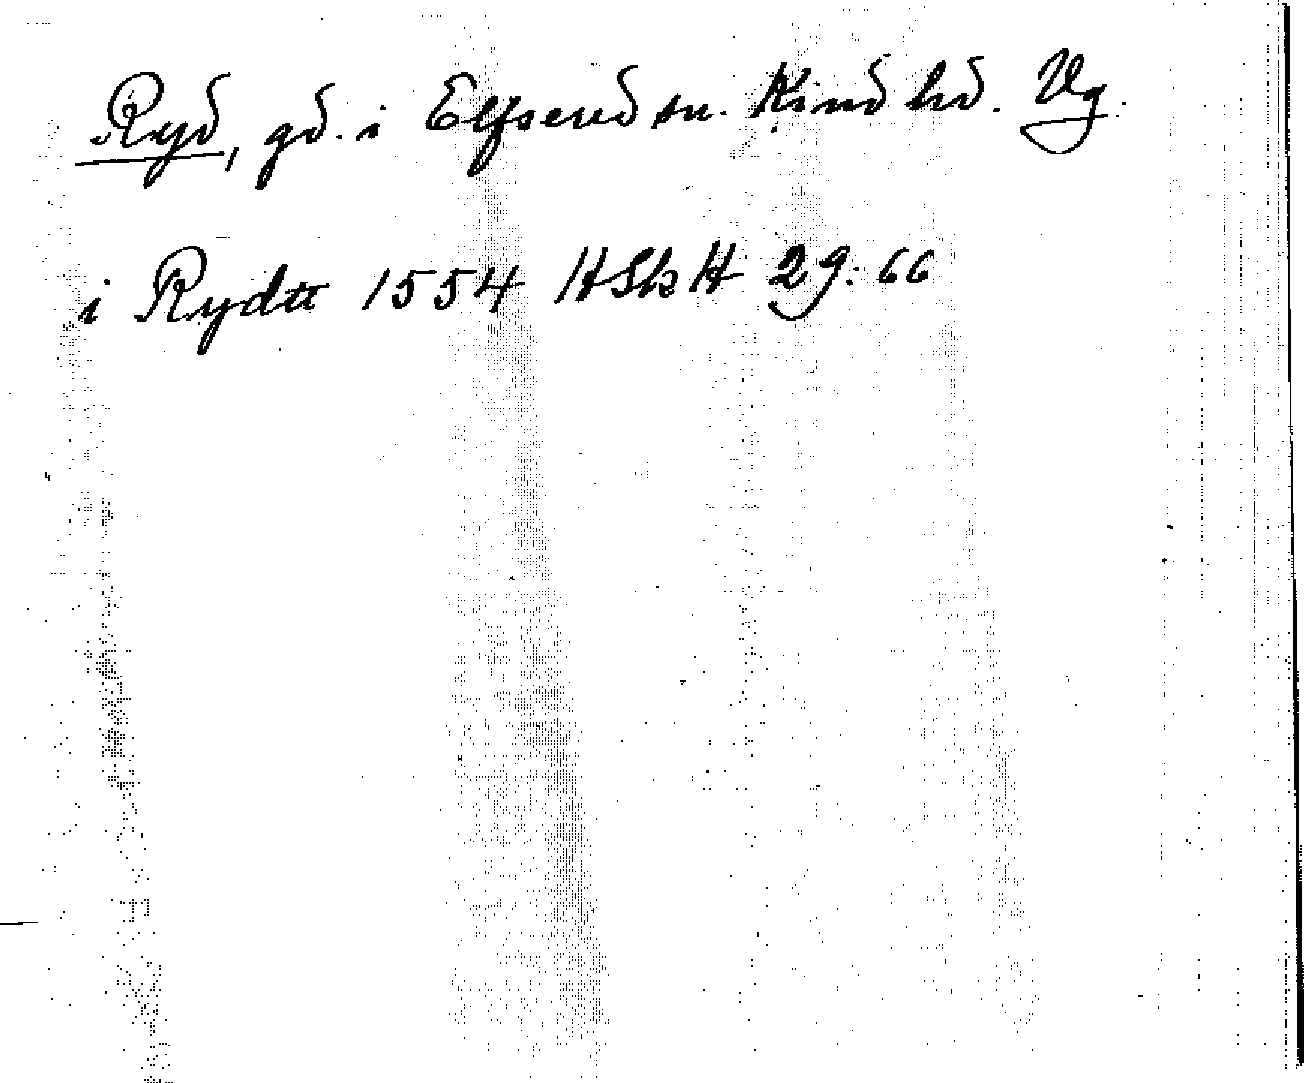 Ryd, gd. i Elfsered sn. Kind hd. Vg.
i Rydtt 1554 HSkH 29:66